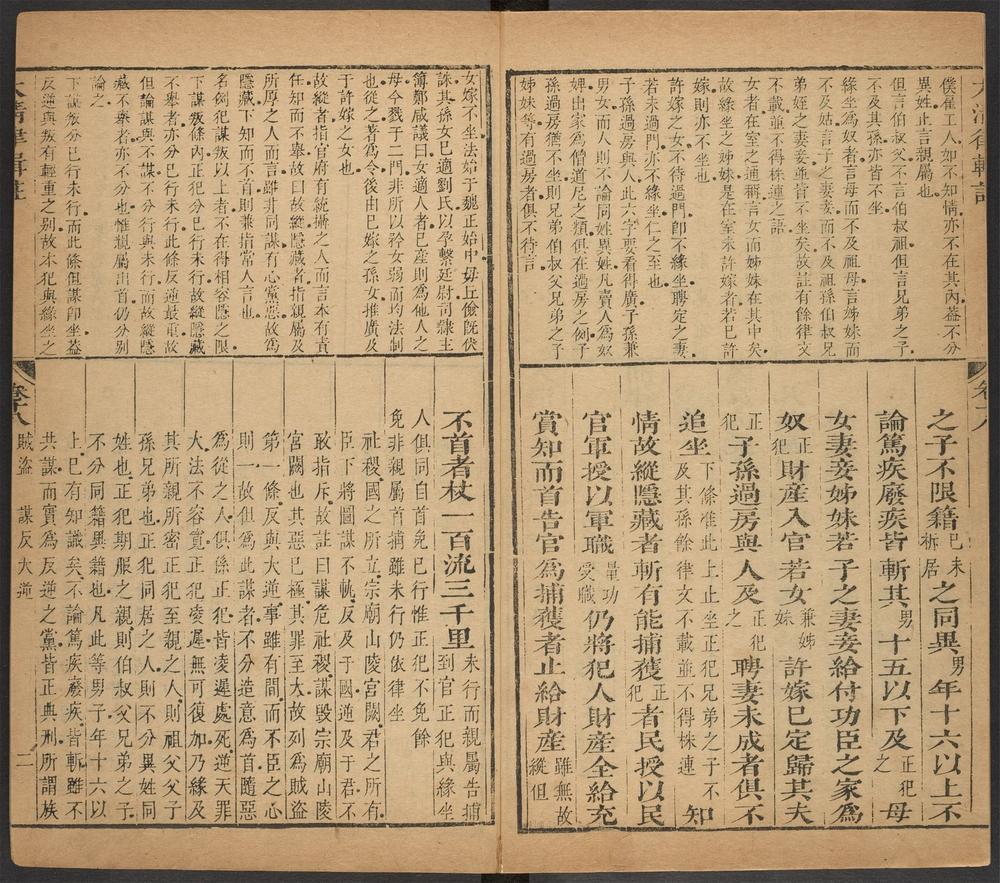 大清律輯註
僕雇工人如不知情亦不在其內葢不分
異姓止言親屬也
但言伯叔父不言伯叔祖但言兄弟之子
不及其孫亦皆不坐
緣坐為奴者言母而不及祖母言姊妹而
不及姑言子之妻妾而不及祖孫伯叔兄
弟姪之妻妾並皆不坐矣故註有餘律文
不載並不得株連之語
女者在室之通稱言女而姊妹在其中矣
故緣坐之姊妹是在室未許嫁者若已許
嫁則亦不坐也
許嫁之女不待過門卽不緣坐聘定之妻
若未過門亦不緣坐仁之至也
子孫過房與人此六字要看得廣子孫兼
男女而人則不論同姓異姓凡賣人為奴
婢出家為僧道尼之類俱在過房之例子
孫過房猶不坐則兄弟伯叔父兄弟之子
姊妹等有過房者俱不待言
卷十八
之子不限籍已未析居之同異男年十六以上不
論篤疾廢疾皆斬其男十五以下及正犯之母
女妻妾姊妹若子之妻妾給付功臣之家為
奴正犯財產入官若女兼姊妹許嫁已定歸其夫
正犯子孫過房與人及正犯之聘妻未成者俱不
追坐下條准此上止坐正犯兄弟之子不及其孫餘律文不載並不得株連知
情故縱隱藏者斬有能捕獲正犯者民授以民
官軍授以軍職量功受職仍將犯人財產全給充
賞知而首告官為捕獲者止給財產雖無故縱但
女嫁不坐法始于魏正始中毋丘儉旣伏
誅其孫女已適劉氏以孕繫廷尉司隸主
簿郯咸議曰女適人者已產則為他人之
母今戮于二門非所以矜女弱而均法制
也從之著為令後由已嫁之孫女推廣及
于許嫁之女也
故縱者指官府有統攝之人而言本有責
任知而不舉故曰故縱隱藏者指親屬及
所厚之人而言雖非同謀有心黨惡故為
隱藏下知而不首則兼指常人言也
名例犯謀叛以上者不在得相容隱之限
下謀叛條內正犯分已行未行故縱隱藏
不舉者亦分已行未行此條反逆最重故
但論謀與不謀不分行與未行而故縱隱
藏不舉者亦不分也惟親屬出首仍分別
論之
下謀叛分已行未行而此條但謀卽坐葢
反逆與叛有輕重之别故本犯與緣坐之
大清律輯註
不首者杖一百流三千里未行而親屬告捕到官正犯與緣坐
人俱同自首免已行惟正犯不免餘
免非親屬首捕雖未行仍依律坐
社稷國之所立宗廟山陵宮闕君之所有
臣下將圖謀不軌反及于國逆及于君不
敢指斥故註曰謀危社稷謀毀宗廟山陵
宮闕也其惡已極其罪至大故列為賊盜
第一條反與大逆事雖有間而不臣之心
則一故但共為此謀者不分造意為首隨惡
為從之人俱係正犯皆凌遲處死逆天罪
大法不容寬正犯凌遲無可復加乃緣及
其所親所密正犯至親之人則祖父父子
孫兄弟也正犯同居之人則不分異姓同
姓也正犯期服之親則伯叔父兄弟之子
不分同籍異籍也凡此等男子年十六以
上已有知識矣不論篤疾廢疾皆斬雖不
共謀而實為反逆之黨皆正典刑所謂族
卷十八
賊盜
謀反大逆
二